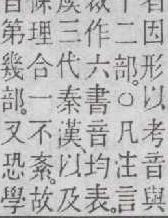 者因形以考音與
十二部。○凡注言
裁作六書音均表。
虞三代秦漢以及
條理合一不紊。故
音第幾部。又恐學